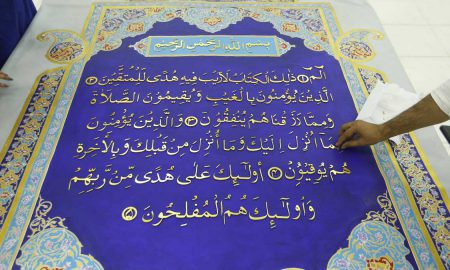 بِسْمِ اللهِ الرَّحْمٰنِ الرَّحِيمِ
الٓمٓ ۝١ ذٰلِكَ الْكِتَابُ لَارَيْبَ فِيهِ هُدًى لِلْمُتَّقِينَ ۝٢
الَّذِينَ يُؤْمِنُونَ بِالْغَيْبِ وَيُقِيمُونَ الصَّلَاةَ
وَمِمَّا رَزَقْنَاهُمْ يُنْفِقُونَ ۝٣ وَالَّذِينَ يُؤْمِنُونَ
بِمَا أُنْزِلَ إِلَيْكَ وَمَا أُنْزِلَ مِنْ قَبْلِكَ وَبِالْآخِرَةِ
هُمْ يُوقِنُونَ ۝٤ أُولٰئِكَ عَلَى هُدًى مِنْ رَبِّهِمْ
وَأُولٰئِكَ هُمُ الْمُفْلِحُونَ ۝٥